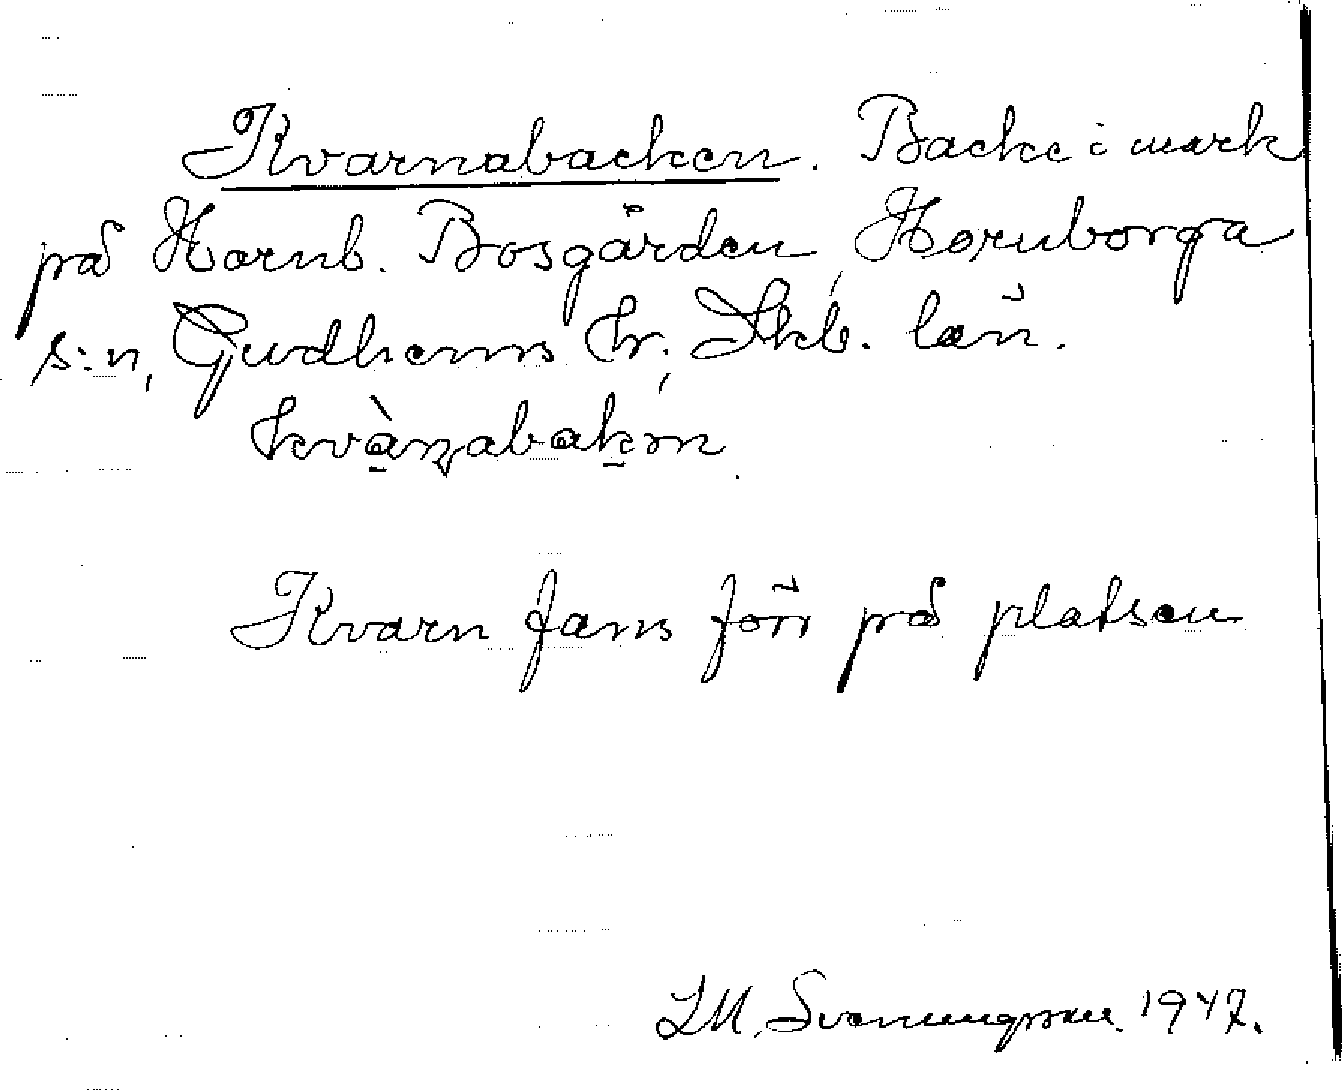 Kvarnabacken. Backe i mark
på Hornb. Bosgården, Hornborga
s:n, Gudhems hr, Skb. län.
kvàɳabakən
Kvarn fans förr på platsen
I.M. Svenningsson 1947.